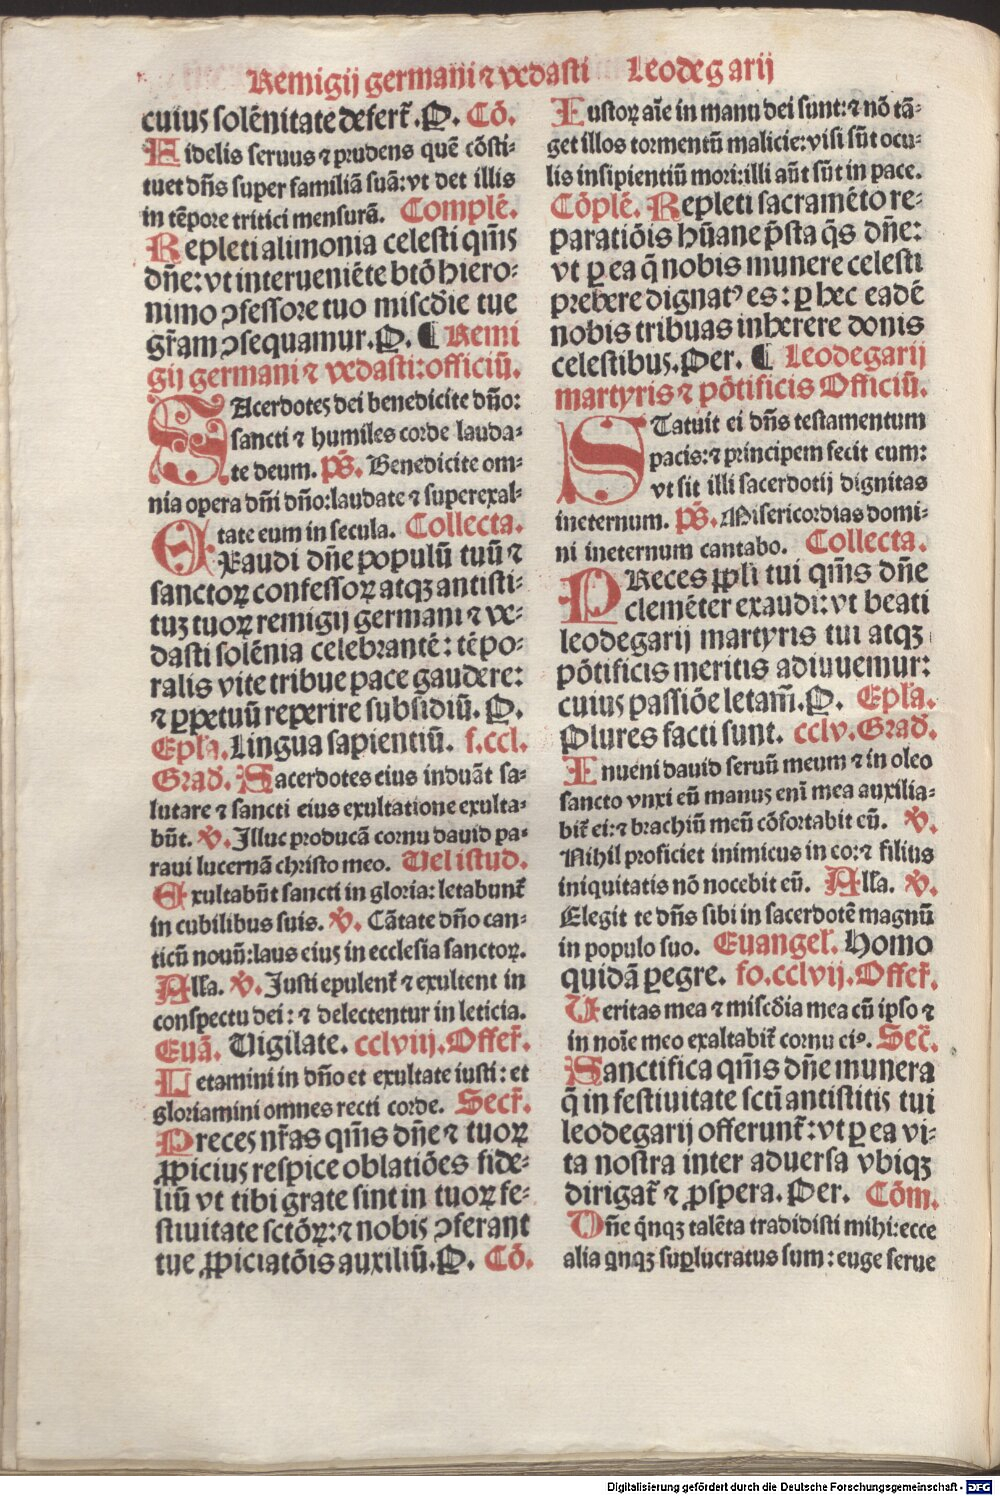 Remigij germani ⁊ vedasti Leodegarij
cuiꝰ solēnitate defert̄ . P. Cō.
Fidelis seruus ⁊ prudens quē cōsti-
tuet dn̄s super familiā suā: vt det illis
in tēpore tritici mensurā. Complē.
Repleti alimonia celesti qm̄s
dn̄e: vt interueniēte btō hiero-
nimo ꝯfessore tuo misc̄die tue
gr̄am ꝯsequamur. P. ¶ Remi
gij germani ⁊ vedasti: officiū.
SAcerdotes dei benedicite dn̄o:
sancti ⁊ humiles corde lauda-
te deum. ps̄. Benedicite om-
nia opera dn̄i dn̄o: laudate ⁊ superexal-
tate eum in secula. Collecta.
EXaudi dn̄e populū tuū ⁊
sanctoꝝ confessoꝝ atqꝫ antisti-
tuꝫ tuoꝝ remigij germani ⁊ ve-
dasti solēnia celebrantē: tēpo-
ralis vite tribue pace gaudere:
⁊ ꝑpetuū reperire subsidiū. P.
Epl̄a. Lingua sapientiū. f. ccl.
Grad̄. Sacerdotes eius induāt sa-
lutare ⁊ sancti eius exultatione exulta-
būt. ℣. Illuc producā cornu dauid pa-
raui lucernā christo meo. Uel istud.
Exultabūt sancti in gloria: letabunt̄
in cubilibus suis. ℣. Cātate dn̄o can-
ticū nouū: laus eiꝰ in ecclesia sanctoꝝ.
All̄a. ℣. Justi epulent̄ ⁊ exultent in
conspectu dei: ⁊ delectentur in leticia.
Euā. Vigilate. cclviij. Offer̄.
Letamini in dn̄o et exultate iusti: et
gloriamini omnes recti corde. Secr̄.
Preces nr̄as qm̄s dn̄e ⁊ tuoꝝ
ꝓpicius respice oblatiōes fide-
liū vt tibi grate sint in tuoꝝ fe-
stiuitate sctōꝝ: ⁊ nobis ꝯferant
tue ꝓpiciatōis auxiliū. P. Cō.
Iustoꝝ aīe in manu dei sunt: ⁊ nō tā-
get illos tormentū malicie: visi sūt ocu-
lis insipientiū mori: illi aūt sūt in pace.
Cōplē. Repleti sacramēto re-
paratiōis hūane p̄sta q̄s dn̄e:
vt ꝑ ea q̄ nobis munere celesti
prebere dignatꝰ es: ꝑ hec eadē
nobis tribuas inherere donis
celestibus. Per. ¶ Leodegarij
martyris ⁊ pōtificis Officiū.
STatuit ei dn̄s testamentum
pacis: ⁊ principem fecit eum:
vt sit illi sacerdotij dignitas
ineternum. ps̄. Misericordias domi-
ni ineternum cantabo. Collecta.
PReces ppl̄i tui qm̄s dn̄e
clemēter exaudi: vt beati
leodegarij martyris tui atqꝫ
pōtificis meritis adiuuemur:
cuius passiōe letam̄. P. Epl̄a.
Plures facti sunt. cclv. Grad̄.
Inueni dauid seruū meum ⁊ in oleo
sancto vnxi eū manus eni mea auxilia-
bit̄ ei: ⁊ brachiū meū cōfortabit eū. ℣.
Nihil proficiet inimicus in co: ⁊ filius
iniquitatis nō nocebit eū. All̄a. ℣.
Elegit te dn̄s sibi in sacerdotē magnū
in populo suo. Euangel̄. Homo
quidā ꝑegre. fo. cclvij. Offer̄.
Veritas mea ⁊ misc̄dia mea cū ipso ⁊
in noīe meo exaltabit̄ cornu eiꝰ. Secr̄.
Sanctifica qm̄s dn̄e munera
q̄ in festiuitate sctī antistitis tui
leodegarij offerunt̄: vt ꝑ ea vi-
ta nostra inter aduersa vbiqꝫ
dirigat̄ ⁊ ꝓspera. Per. Cōm.
Dn̄e q̄nqꝫ talēta tradidisti mihi: ecce
alia q̄nqꝫ suꝑlucratus sum: euge serue
Digitalisierung gefördert durch die Deutsche Forschungsgemeinschaft - DFG